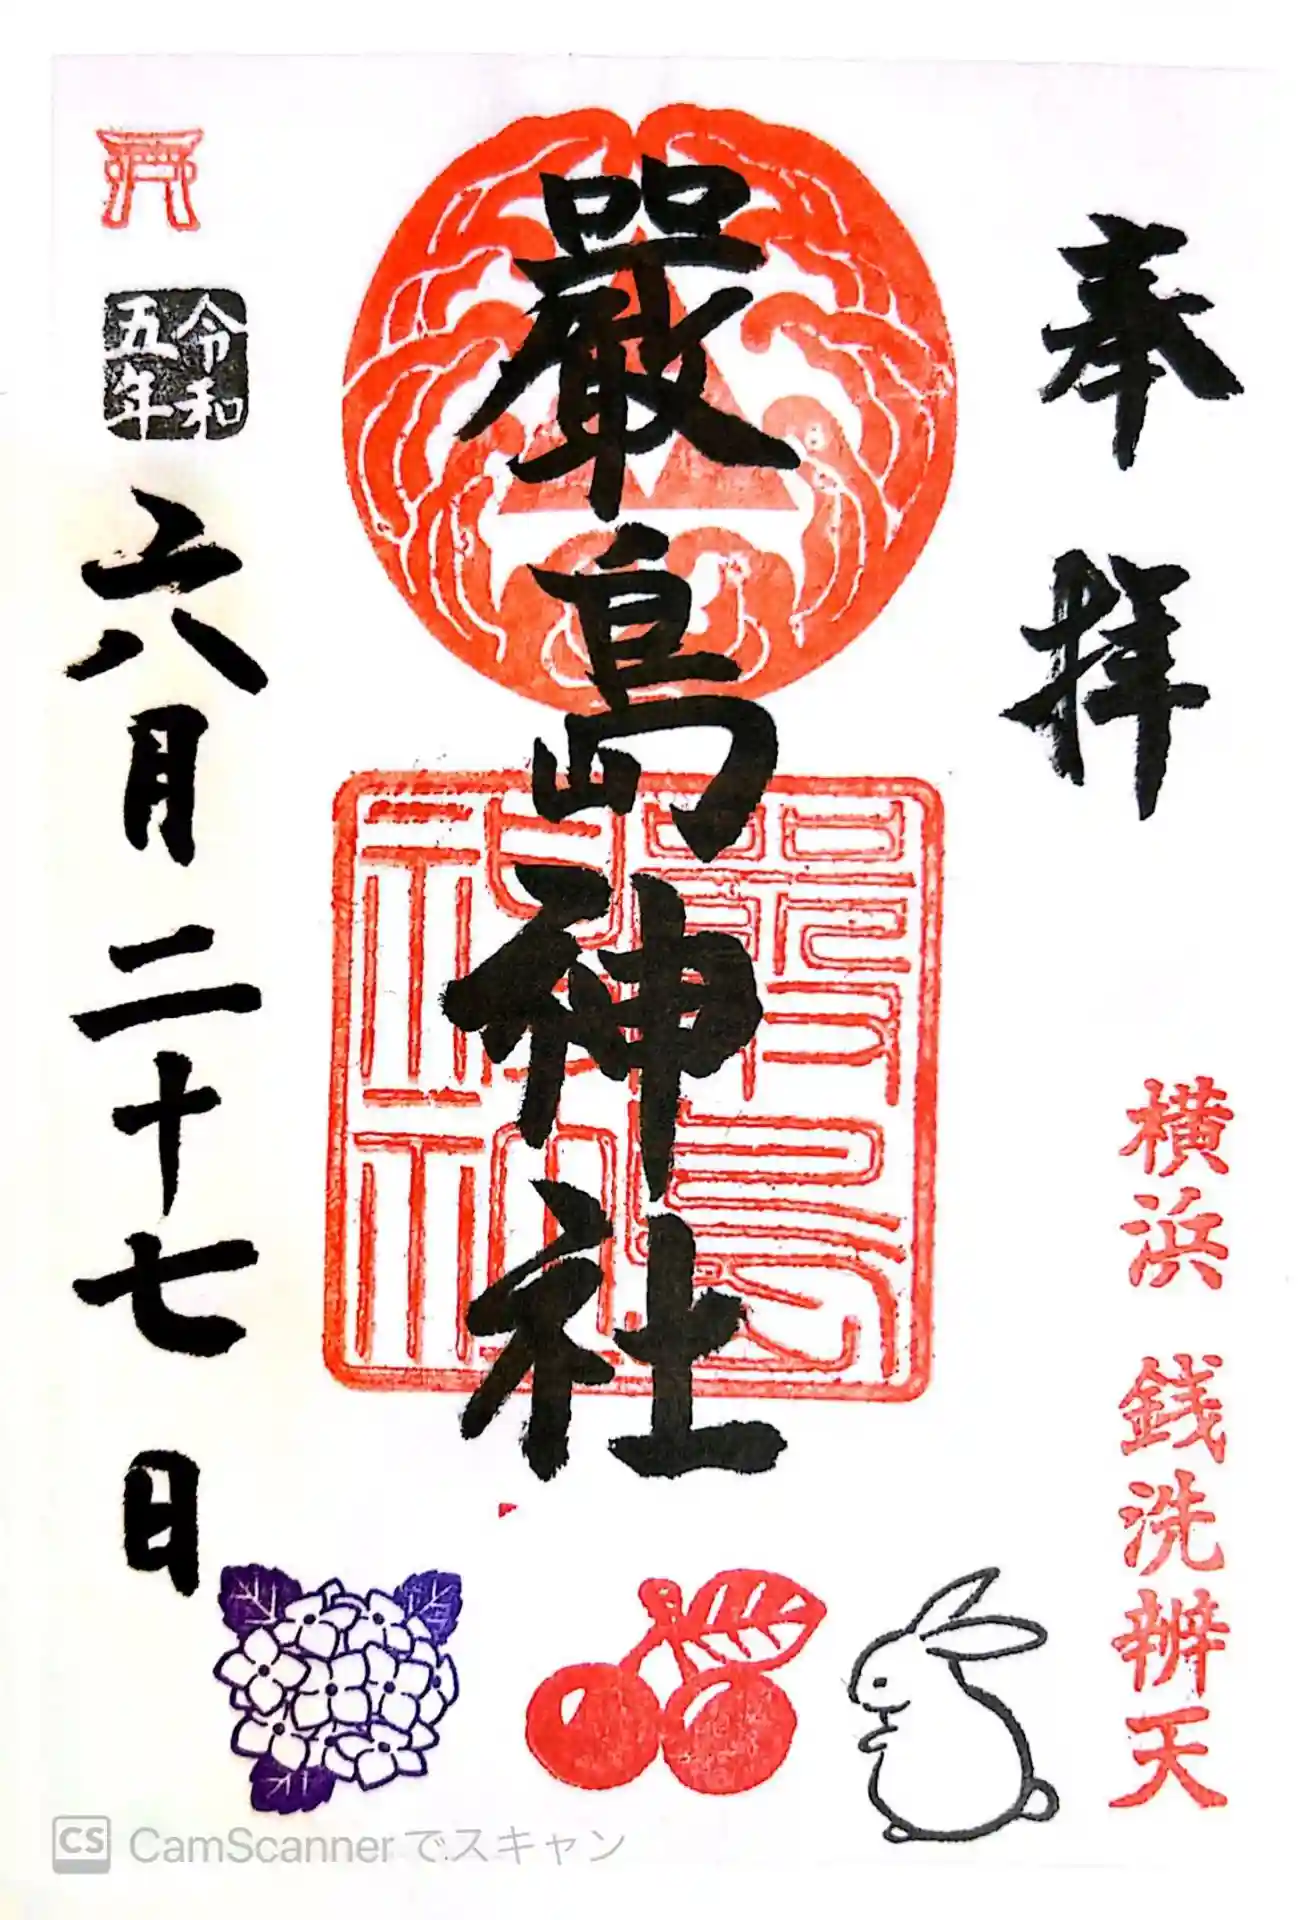 奉拝
横浜 銭洗辨天
嚴島神社
嚴島神社
令和
五年
六月二十七日
CS CamScannerでスキャン